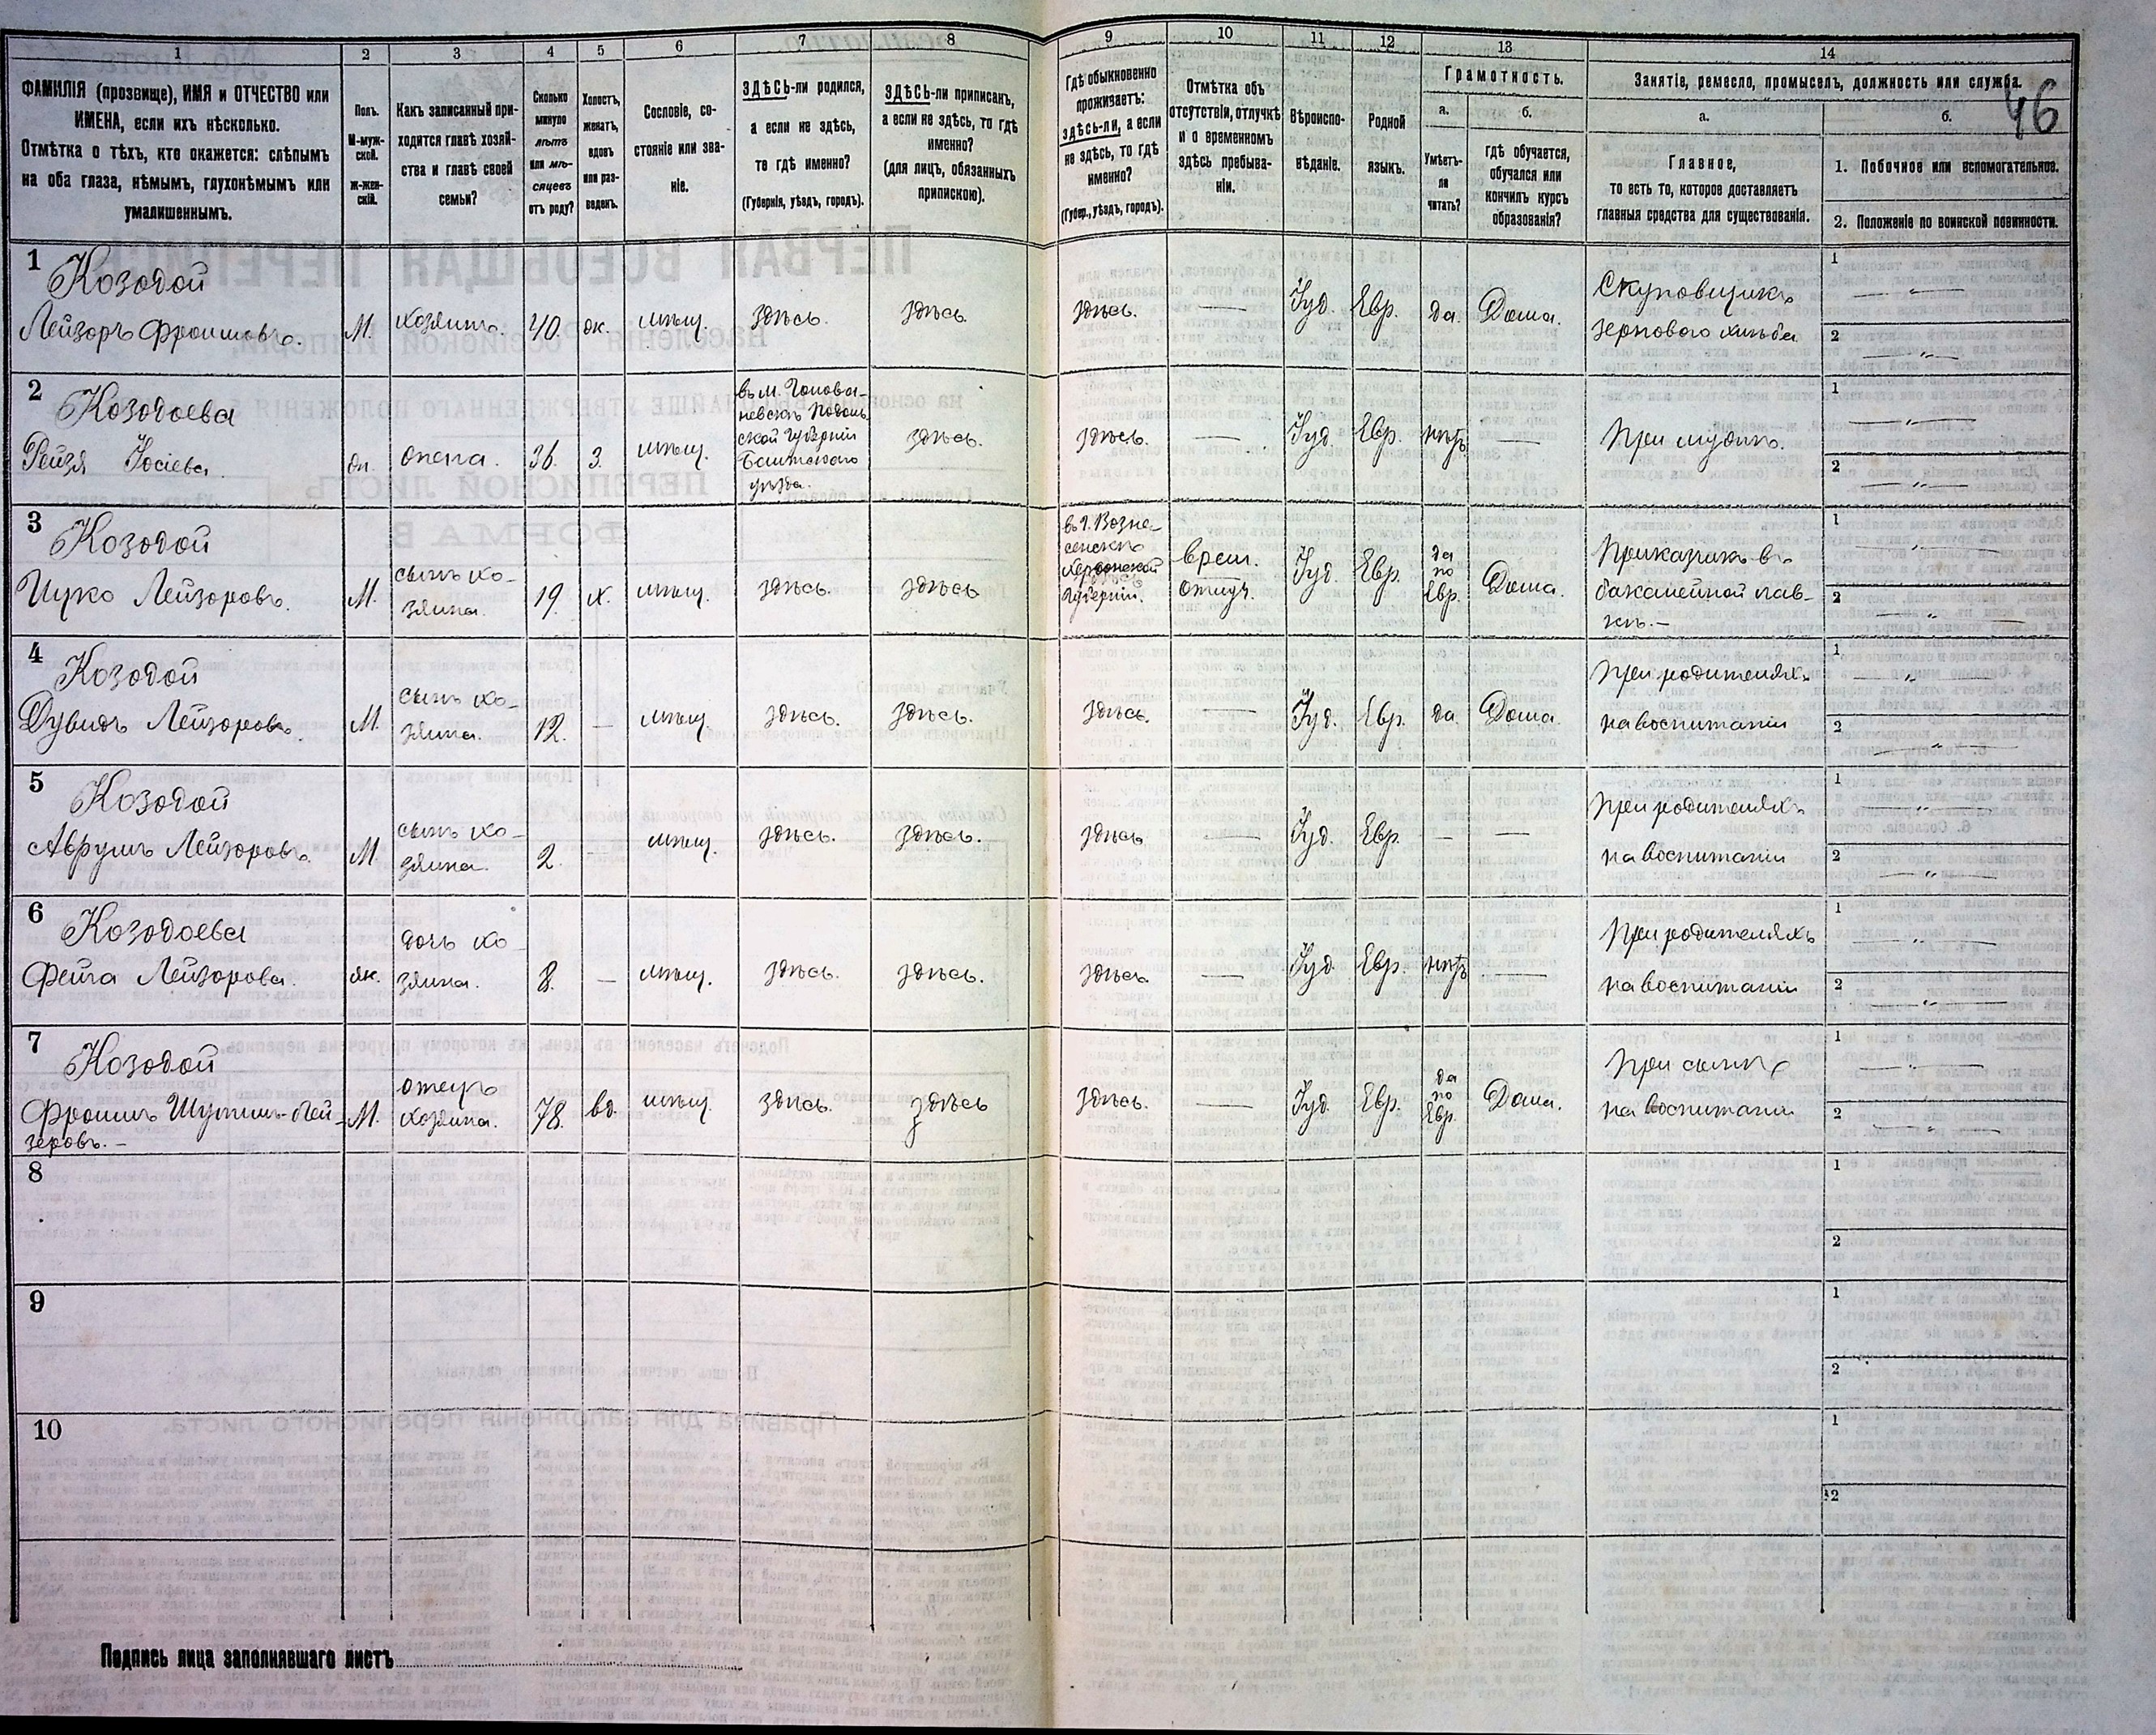 46
1
2
3
4
5
6
7
8
9
10
11
12
13
14
ФАМИЛІЯ (прозвище), ИМЯ и ОТЧЕСТВО или
ИМЕНА, если ихъ нѣсколько.
Отмѣтка о тѣхъ, кто окажется: слѣпымъ
на оба глаза, нѣмымъ, глухонѣмымъ или
умалишеннымъ.
Полъ.
М-муж-
ской.
Ж-жен-
скій.
Какъ записанный при-
ходится главѣ хозяй-
ства и главѣ своей
семьи?
Сколько
минуло
лѣтъ
или мѣ-
сяцевъ
отъ роду?
Холостъ,
женатъ,
вдовъ
или раз-
веденъ.
Сословіе, со-
стояніе или зва-
ніе.
ЗДѢСЬ-ли родился,
а если не здѣсь,
то гдѣ именно?
(Губернія, уѣздъ, городъ).
ЗДѢСЬ-ли приписанъ,
а если не здѣсь, то гдѣ
именно?
(для лицъ, обязанныхъ
припискою).
Гдѣ обыкновенно
проживаетъ:
здѣсь-ли, а если
не здѣсь, то гдѣ
именно?
(Губер., уѣздъ, городъ).
Отмѣтка объ
отсутствіи, отлучкѣ
и о временномъ
здѣсь пребыва-
ніи.
Вѣроиспо-
вѣданіе.
Родной
языкъ.
Грамотность.
а.
Умѣетъ-
ли
читать?
б.
гдѣ обучается,
обучался или
кончилъ курсъ
образованія?
Занятіе, ремесло, промыселъ, должность или служба.
а.
Главное,
то есть то, которое доставляетъ
главныя средства для существованія.
б.
1. Побочное или вспомогательное.
2. Положеніе по воинской повинности.
1
Козодой
Лейзоръ Фроимовъ.
М.
хозяинъ.
40.
ж.
мѣщ.
здѣсь.
здѣсь.
здѣсь.
—
Іуд.
Евр.
да.
Дома.
Скуповщикъ
зернового хлѣба
1
— " —
2
— " —
2
Козодоева
Рейзя Іосіева
ж.
жена.
36.
з.
мѣщ.
въ м. Голова-
невскѣ Подоль-
ской Губерніи
Балтскаго
уѣзда.
здѣсь.
здѣсь.
—
Іуд.
Евр.
нѣтъ
—
При мужѣ.
1
— " —
2
— " —
3
Козодой
Ицко Лейзоровъ.
М.
сынъ хо-
зяина.
19.
х.
мѣщ.
здѣсь.
здѣсь
въ г. Возне-
сенскѣ
Херсонской
Губерніи.
врем.
отлуч.
Іуд.
Евр.
да
по
Евр.
Дома.
Приказчикъ въ
бакалейной лав-
кѣ. —
1
— " —
2
— " —
4
Козодой
Дувидъ Лейзоровъ.
М.
сынъ хо-
зяина.
12.
—
мѣщ.
здѣсь.
здѣсь.
здѣсь.
—
Іуд.
Евр.
да.
Дома.
При родителяхъ
на воспитаніи
1
— " —
2
— " —
5
Козодой
Аврумъ Лейзоровъ.
М.
сынъ хо-
зяина.
2.
—
мѣщ.
здѣсь.
здѣсь.
здѣсь
—
Іуд.
Евр.
—
—
При родителяхъ
на воспитаніи
1
— " —
2
— " —
6
Козодоева
Фейга Лейзорова.
ж.
дочь хо-
зяина.
8.
—
мѣщ.
здѣсь.
здѣсь.
здѣсь
—
Іуд.
Евр.
нѣтъ
—
При родителяхъ
на воспитаніи
1
— " —
2
— " —
7
Козодой
Фроимъ Шулимъ-Лей-
зеровъ. —
М.
отецъ
хозяина.
78.
вд.
мѣщ.
здѣсь.
здѣсь
здѣсь.
—
Іуд.
Евр.
да
по
Евр.
Дома.
При сынѣ
на воспитаніи
1
— " —
2
— " —
8
1
2
9
1
2
10
1
2
Подпись лица заполнявшаго листъ